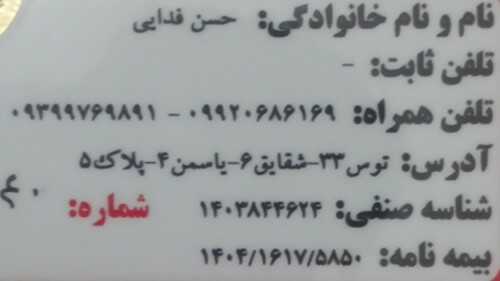 نام و نام خانوادگی: حسن فدایی
تلفن ثابت: -
تلفن همراه: ۰۹۹۲۰۶۸۶۱۶۹ - ۰۹۳۹۹۷۶۹۸۹۱
آدرس: توس۳۳-شقایق۶-یاسمن۴-پلاک۵
شناسه صنفی: ۱۴۰۳۸۴۴۶۲۴ شماره:
بیمه نامه: ۱۴۰۴/۱۶۱۷/۵۸۵۰